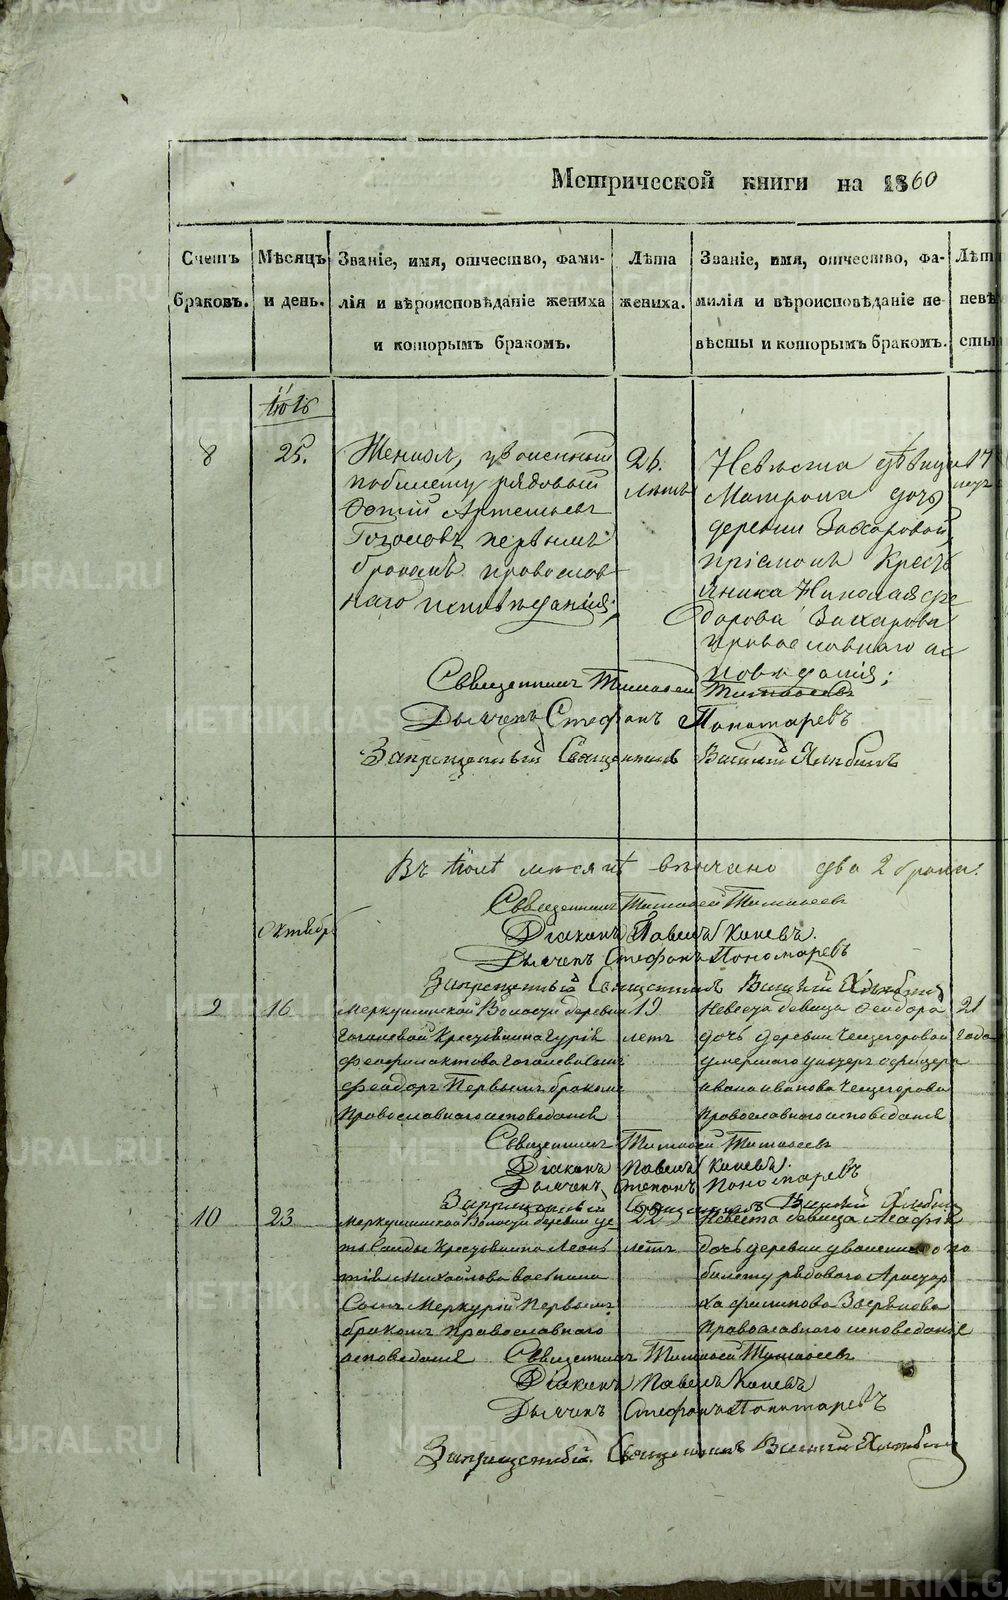 Метрической книги на 1860
Счетъ браковъ.
Мѣсяцъ и день.
Званіе, имя, отчество, фами-
лія и вѣроисповѣданіе жениха
и которымъ бракомъ.
Лѣта жениха.
Званіе, имя, отчество, фа-
милія и вѣроисповѣданіе не-
вѣсты и которымъ бракомъ.
Лѣта
невѣ
сты
8
25.
Женихъ, уволенный
по билету рядовый
Артемьевъ
Гоголевъ первымъ
бракомъ православ
наго исповѣданія;
26.
лѣтъ
Невѣста дѣвица
Матрона дочь
деревни Захаровой,
Кресть
янина Николая Фе
дорова Захарова
православнаго ис
повѣданія;
17
Священникъ Тимофей
Дьячекъ Стефанъ Пономаревъ
Запрещенный Священникъ Василій
Въ Іюлѣ мѣсяцѣ вѣнчано два 2 брака.
Священникъ Тимофей
Діаконъ Павелъ Каневъ.
Дьячекъ Стефанъ Пономаревъ
Запрещенный Священникъ Василій
Октябрь
9
16
Меркушинской Волости деревни
Гоголевой Крестьянина Гурія
Феофилактова Гоголева Сынъ
Феодоръ Первымъ бракомъ
Православнаго исповеданія
19
летъ
Невеста девица Феодора
дочь деревни
умершаго унтеръ офицера
Ивана Иванова
православнаго исповеданія
21
года
Священникъ Тимофей
Діаконъ Павелъ Каневъ.
Дьячекъ Стефанъ Пономаревъ
Запрещенный Священникъ Василій
10
23
Меркушинской Волости деревни
Крестьянина Леонъ
тія Михайлова
Сынъ Меркурій Первымъ
бракомъ православнаго
исповеданія
22
летъ
Невеста девица Агафія
дочь деревни уволеннаго по
билету рядового Аристар
ха Филипова Зверева
православнаго исповеданія
Священникъ Тимофей
Діаконъ Павелъ Каневъ
Дьячекъ Стефанъ Пономаревъ
Запрещенный Священникъ Василій
METRIKI.GASO-URAL.RU